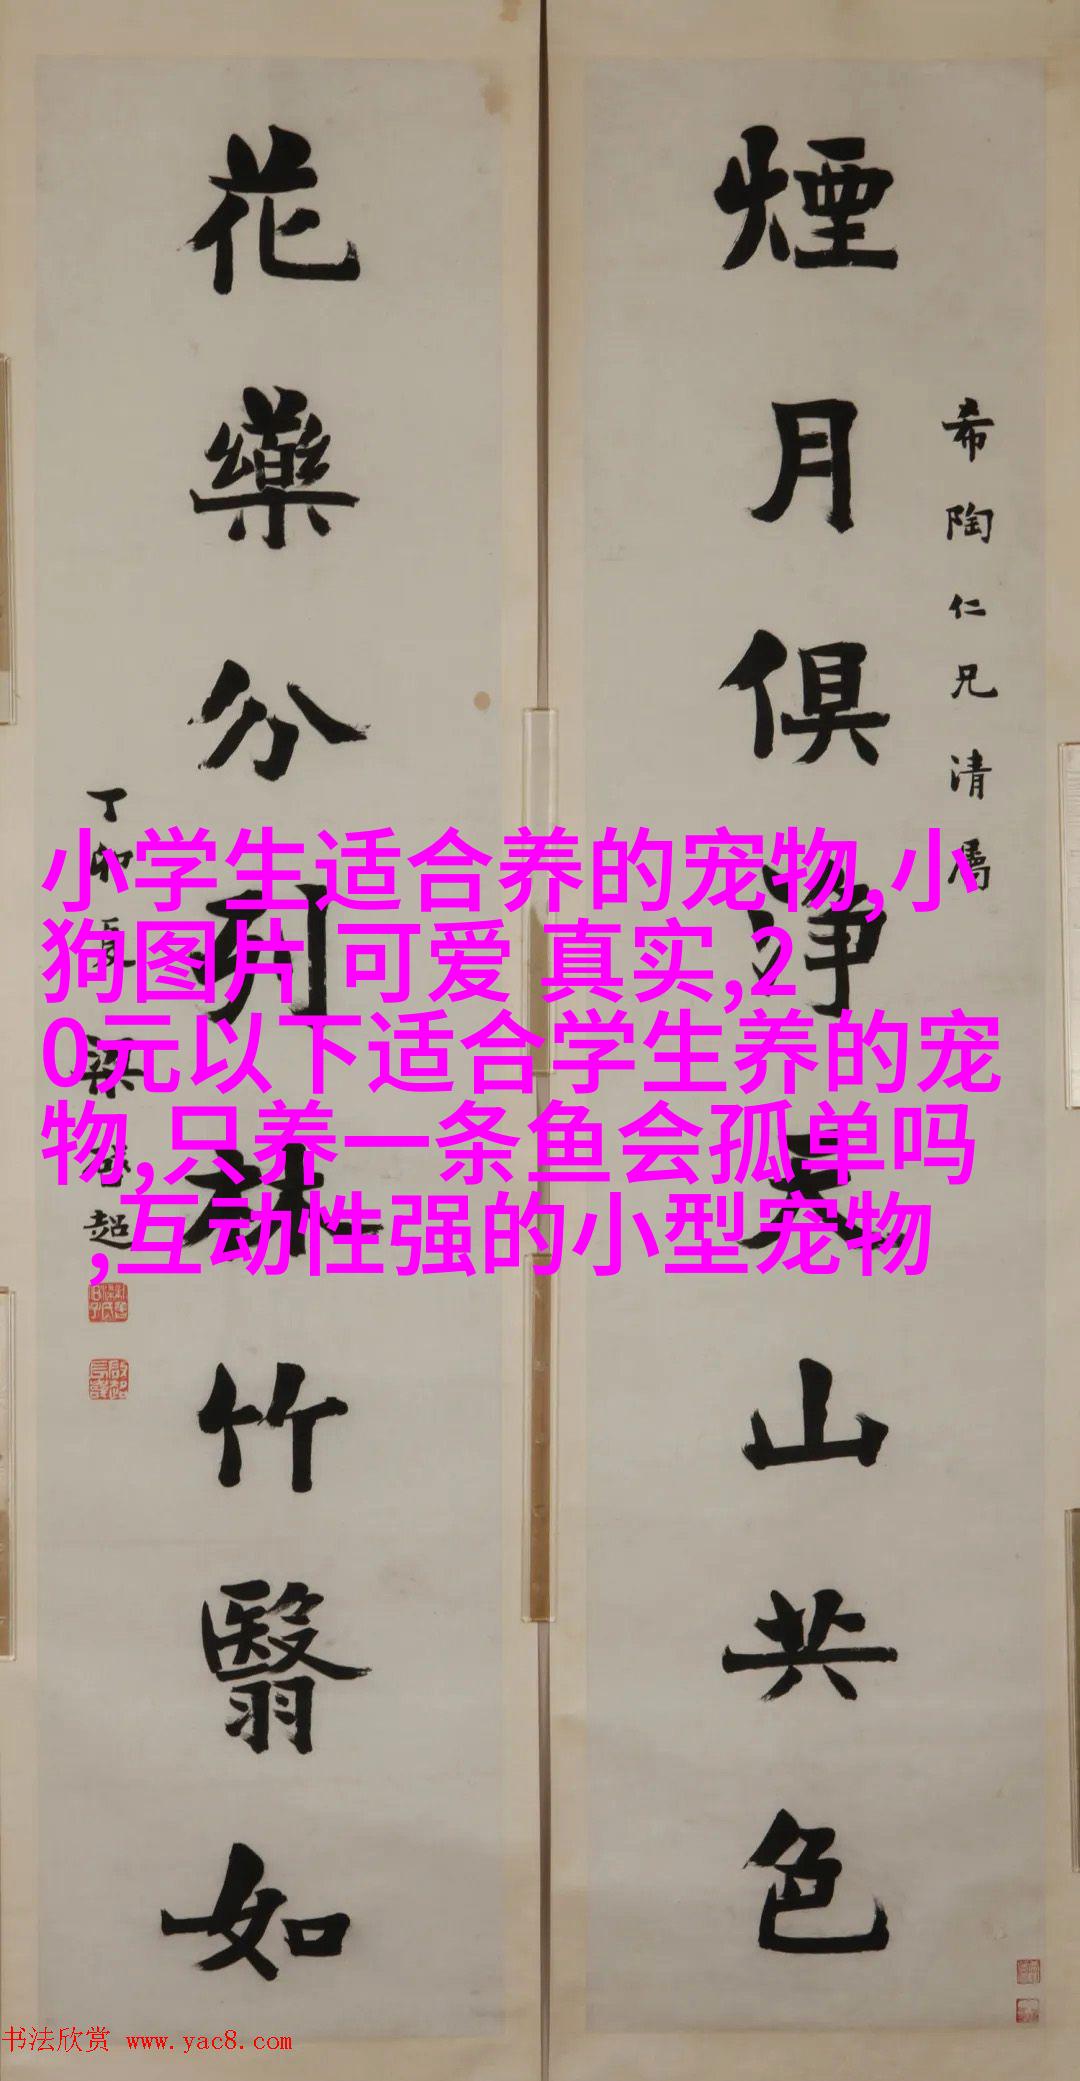 煙月俱淨天山共色
希陶仁兄清屬
花藥分列林竹翳如
丁卯夏
梁啟超
小学生适合养的宠物,小
狗图片 可爱 真实,2
0元以下适合学生养的宠
物,只养一条鱼会孤单吗
,互动性强的小型宠物
书法欣赏 www.yac8.com